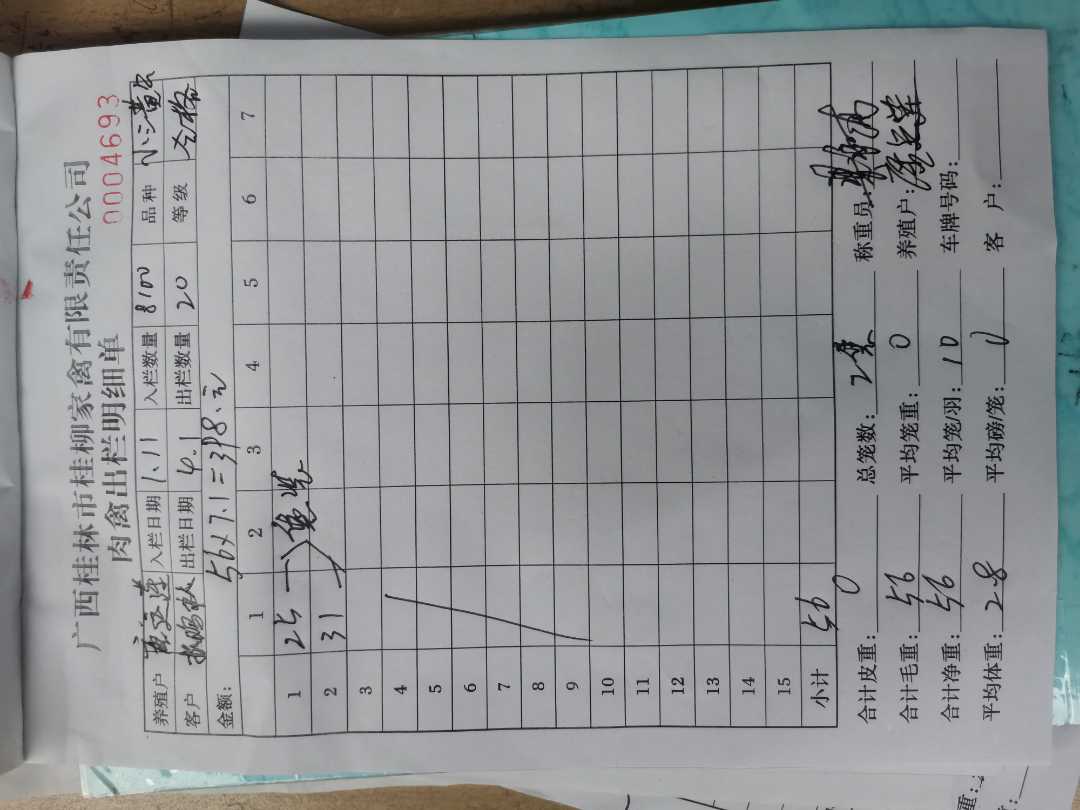 广西桂林市桂柳家禽有限责任公司
肉禽出栏明细单 0004693
养殖户 入栏日期 1.11 入栏数量 8100 品种 小三黄
客户 出栏日期 4.1 出栏数量 20 等级 合格
金额: 56×7.1=398.元
1 2 3 4 5 6 7
1 25
2 31
3
4
5
6
7
8
9
10
11
12
13
14
15
小计 56
合计皮重: 0 总笼数: 2 称重员:
合计毛重: 56 平均笼重: 0 养殖户:
合计净重: 56 平均笼/羽: 10 车牌号码:
平均体重: 2.8 平均磅/笼: 客 户: